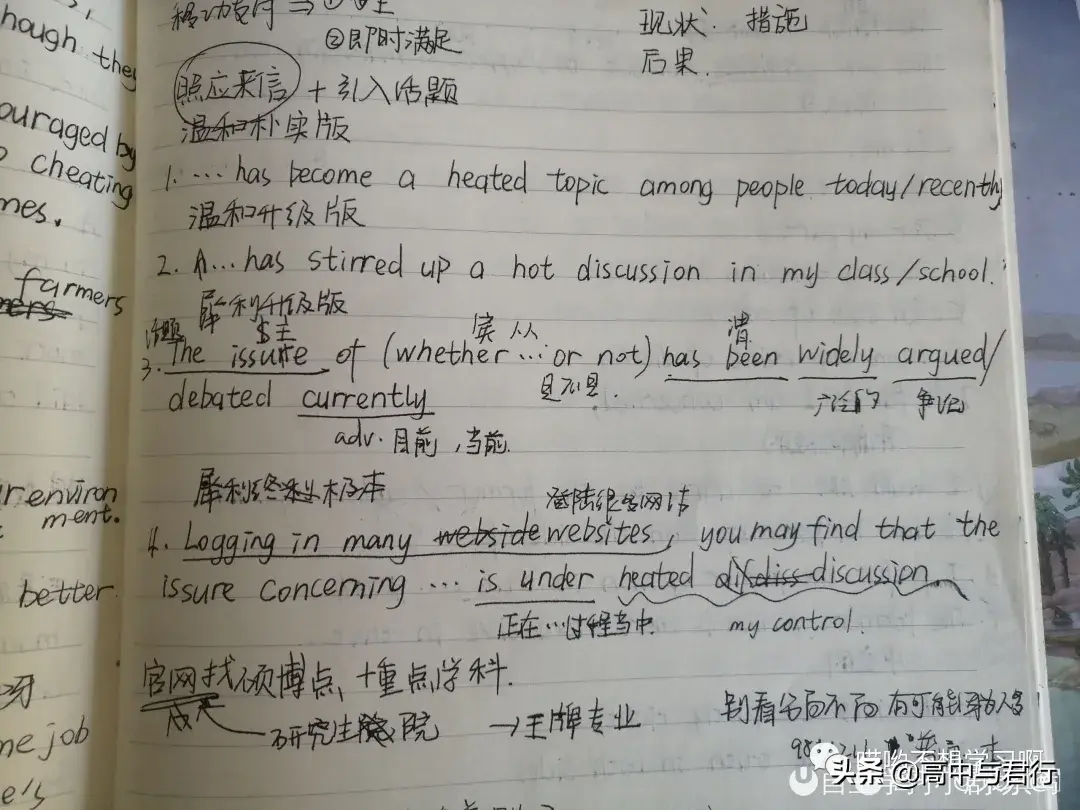 though they
ouraged by
cheating
mes.
farmers
mers
r environ
ment.
better.
牙
me job
e's
移动支付 ⇒ ①
②即时满足
现状: 措施
后果.
照应来信 + 引入话题
温和朴实版
1. ... has become a heated topic among people today/recently
温和升级版
2. A... has stirred up a hot discussion in my class/school.
犀利升级版
话题 宾从
3. The issure of (whether ... or not) has been widely argued/
是不是.
debated currently 争论
adv. 目前, 当前.
犀利终极本 登陆很多网站
4. Logging in many webside websites, you may find that the
issure concerning ... is under heated diss discussion.
正在...过程当中. my control.
官网找硕博点、十重点学科.
研究生院 → 王牌专业
头条 @高中与君行